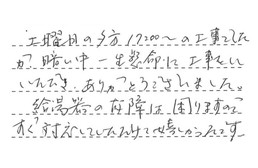 土曜日の夕方17:00～の工事でした
が、暗い中一生懸命に工事をし
いただき、ありがとうございました。
給湯器の故障は困りますので
すぐ対応していただけて嬉しかったです。